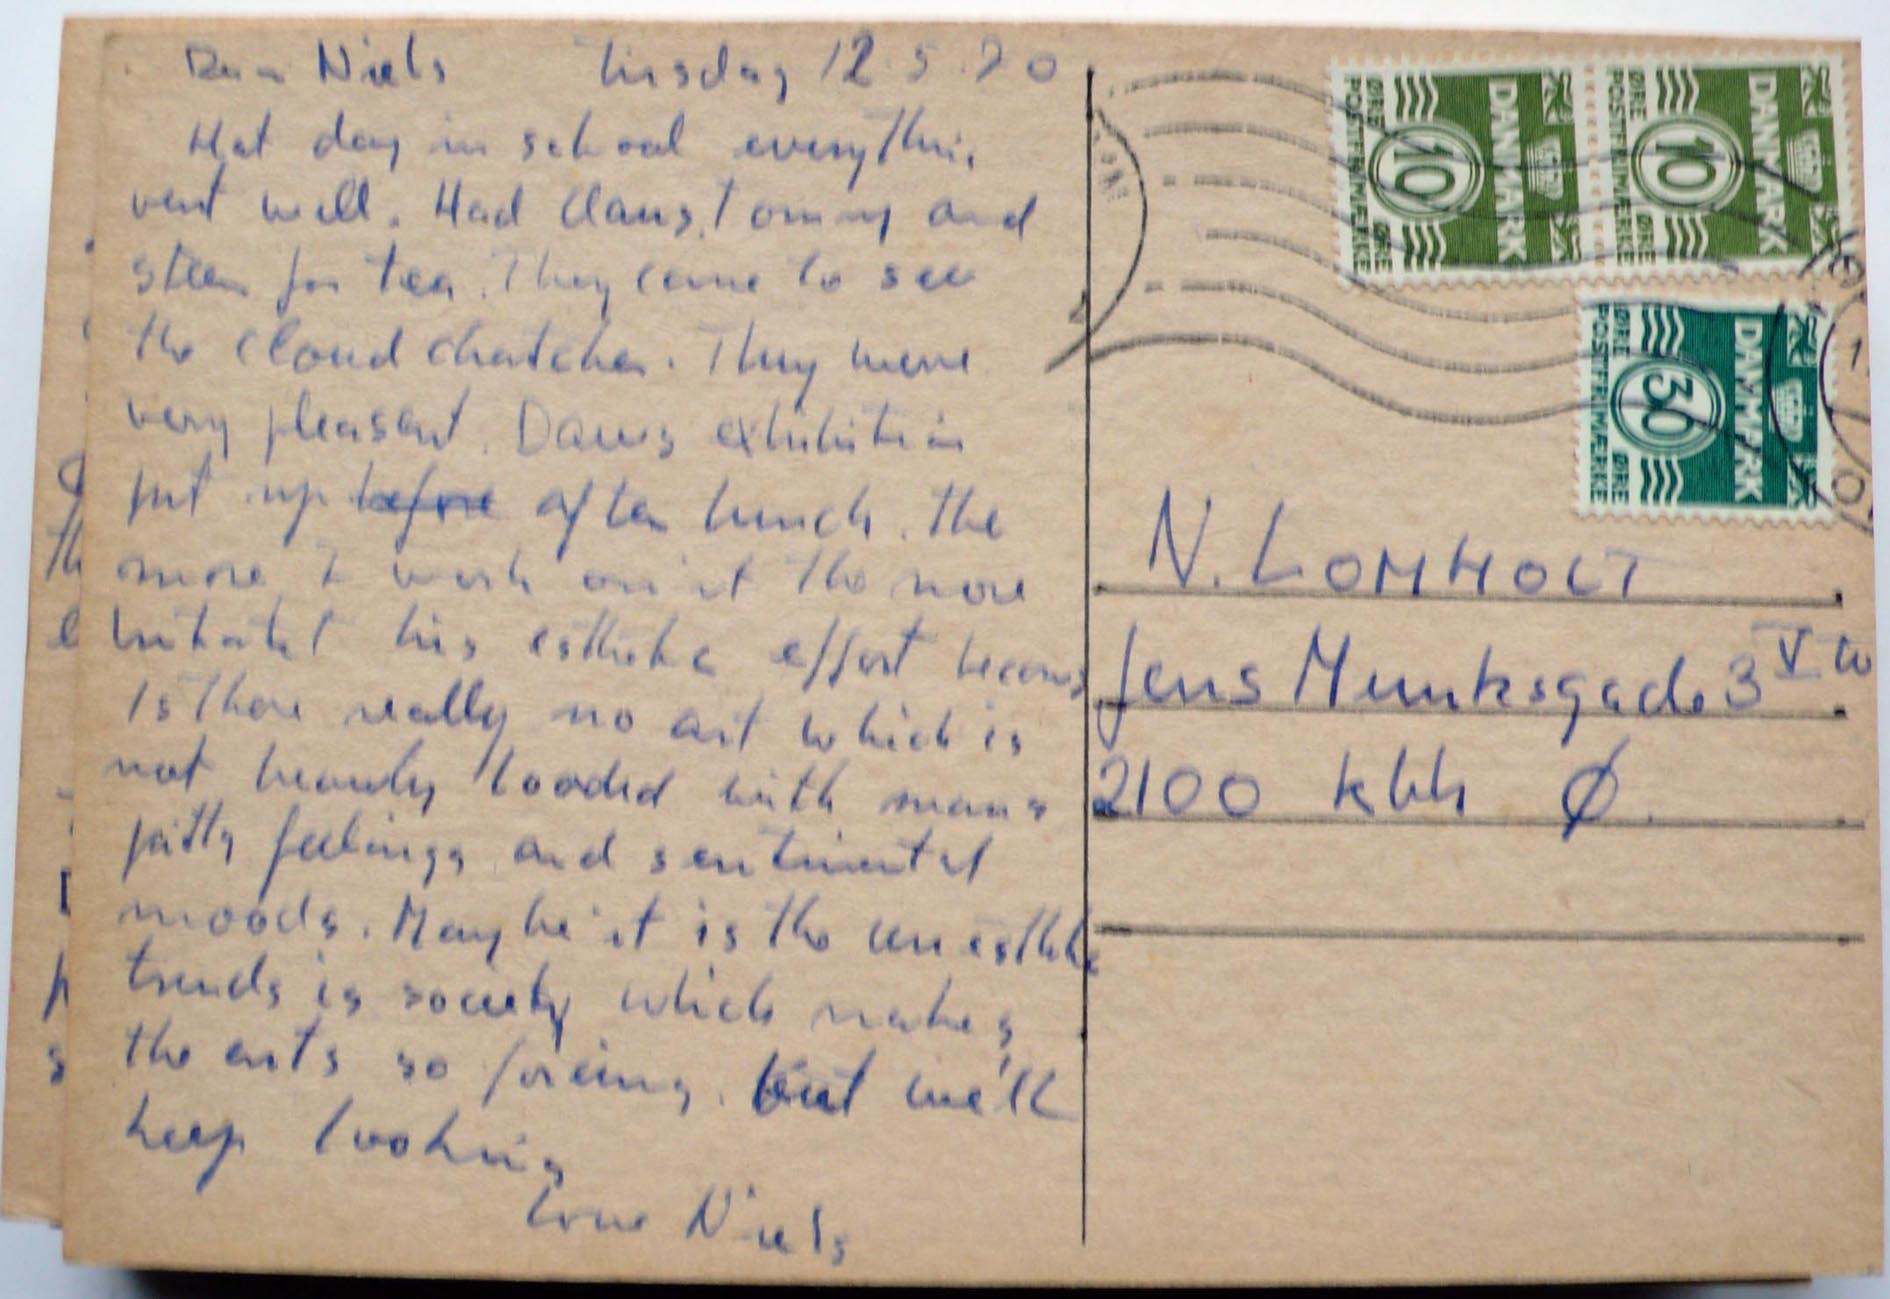 Dear Niels tirsdag 12.5.70
Hat day in school everything
vent well. Had Claus, Tommy and
Steen for tea. They came to see
the cloud chatcher. They were
very pleasent. Daws exhibition
put up before after lunch. The
more I work on it the more
his esthetic effort becoms
Is there really no art which is
not heavely loaded with mans
pitty feelings and sentimental
moods. May be it is the unesthtic
trends is society which makes
the arts so . But we'll
keep looking
Love Niels
DANMARK
10
ØRE ØRE
POSTFRIMÆRKE
DANMARK
10
ØRE ØRE
POSTFRIMÆRKE
DANMARK
30
ØRE ØRE
POSTFRIMÆRKE
N. LOMHOLT
Jens Munksgade 3 V tv
2100 kbh Ø.